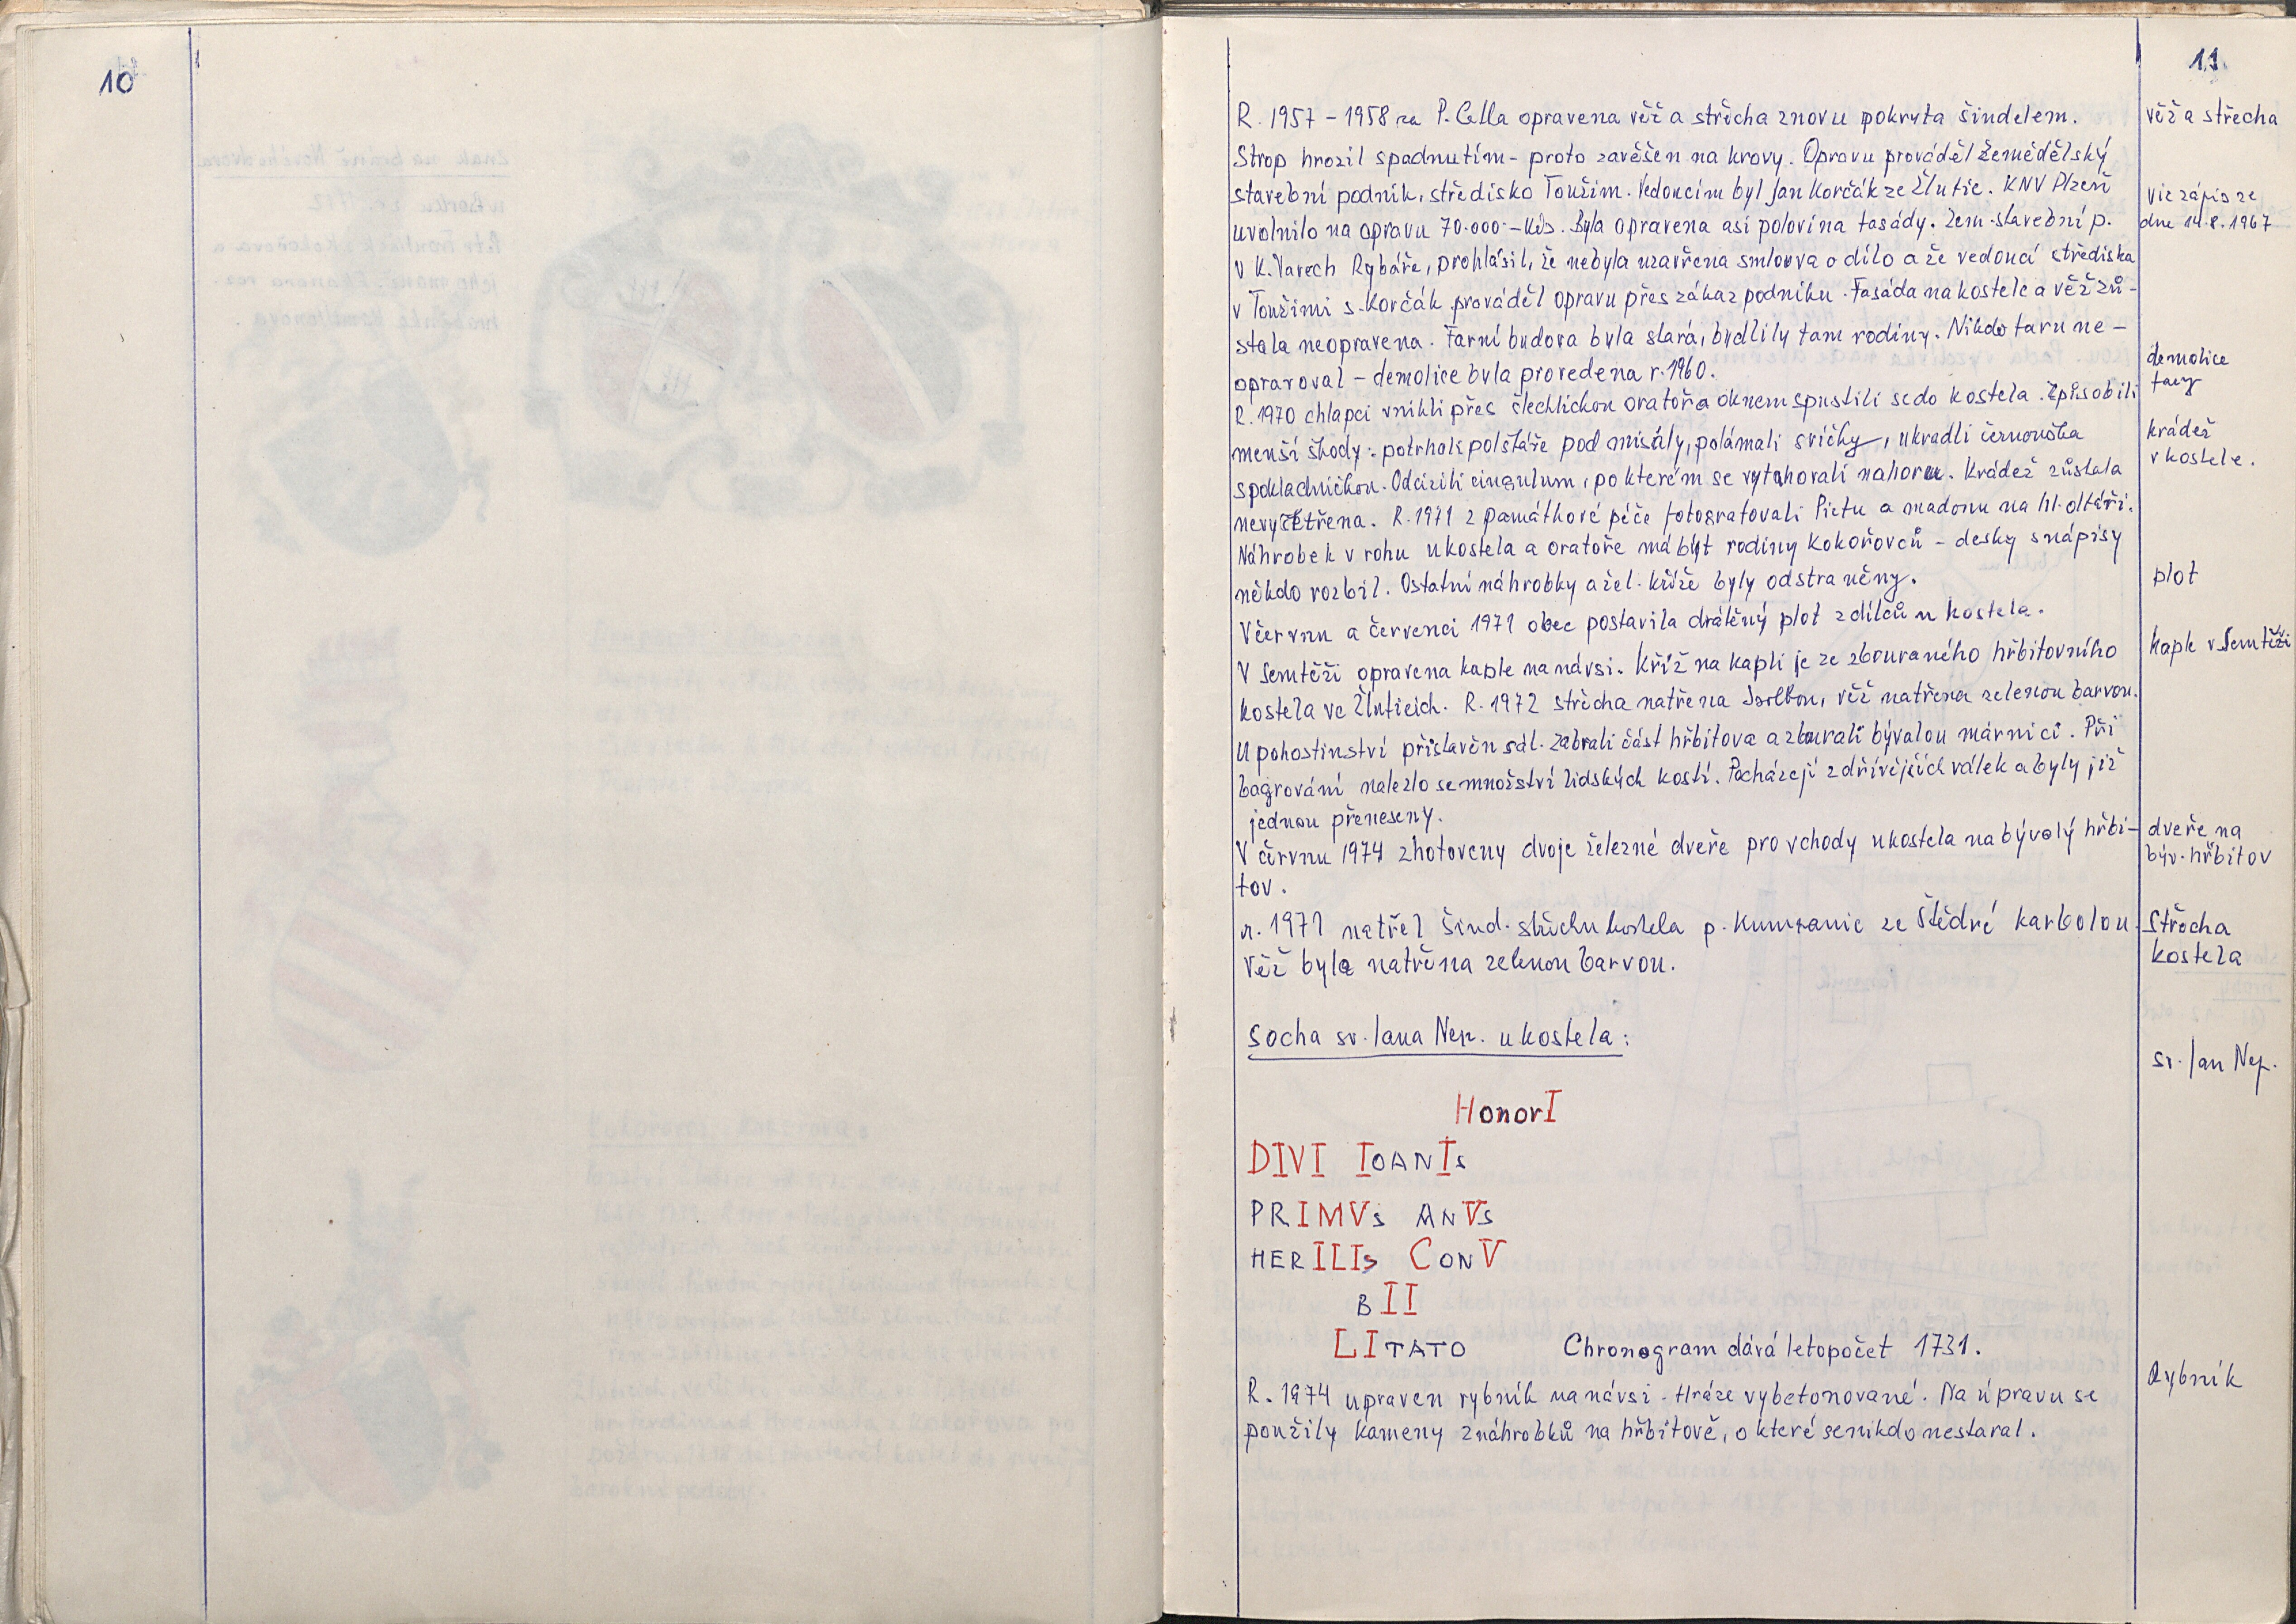 10
11.
R. 1957 - 1958 za P. Cella opravena věž a střecha znovu pokryta šindelem.
věž a střecha
Strop hrozil spadnutím - proto zavěšen na krovy. Opravu prováděl Zemědělský
stavební podnik, středisko Toužim. Vedoucím byl Jan Korčák ze Žlutic. KNV Plzeň
viz zápis ze
uvolnilo na opravu 70.000.- Kčs. Byla opravena asi polovina fasády. Zem. stavební p.
dne 14.8.1967
v K. Varech Rybáře, prohlásil, že nebyla uzavřena smlouva o dílo a že vedoucí střediska
v Toužimi s. Korčák prováděl opravu přes zákaz podniku. Fasáda na kostele a věž zů-
stala neopravena. Farní budova byla stará, bydlily tam rodiny. Nikdo faru ne -
opravoval - demolice byla provedena r. 1960.
demolice
fary
R. 1970 chlapci vnikli přes šlechlickou oratoř a oknem spustili se do kostela. Způsobili
menší škody: potrhali polštáře pod misály, polámali svíčky, ukradli černouška
krádež
v kostele.
s pokladničkou. Odcizili cingulum, po kterém se vytahovali nahoru. Krádež zůstala
nevyšetřena. R. 1971 z památkové péče fotografovali Pietu a madonu na hl. oltáři.
Náhrobek v rohu u kostela a oratoře má být rodiny Kokořovců - desky s nápisy
někdo rozbil. Ostatní náhrobky a žel. kříže byly odstraněny.
plot
V červnu a červenci 1971 obec postavila drátěný plot z dílců u kostela.
V Semtěši opravena kaple na návsi. Kříž na kapli je ze zbouraného hřbitovního
kaple v Semtěši
kostela ve Žluticích. R. 1972 střecha natřena barvou, věž natřena zelenou barvou.
U pohostinství přistavěn sál. Zabrali část hřbitova a zbourali bývalou márnici. Při
bagrování nalezlo se množství lidských kostí. Pocházejí z dřívějších válek a byly již
jednou přeneseny.
V červnu 1974 zhotoveny dvoje železné dveře pro vchody u kostela na bývalý hřbi-
dveře na
býv. hřbitov
tov.
r. 1971 natřel šind. střechu kostela p. ze Štědré karbolou.
Střecha
kostela
Věž byla natřena zelenou barvou.
Socha sv. Jana Nep. u kostela:
sv. Jan Nep.
HonorI
DIVI IOANIs
PRIMVs ANVs
HERILIs CONV
BII
LITATO Chronogram dává letopočet 1731.
R. 1974 upraven rybník na návsi. Hráze vybetonované. Na úpravu se
Rybník
použily kameny z náhrobků na hřbitově, o které se nikdo nestaral.